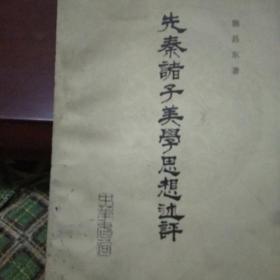 先秦諸子美學思想述評
中華書局